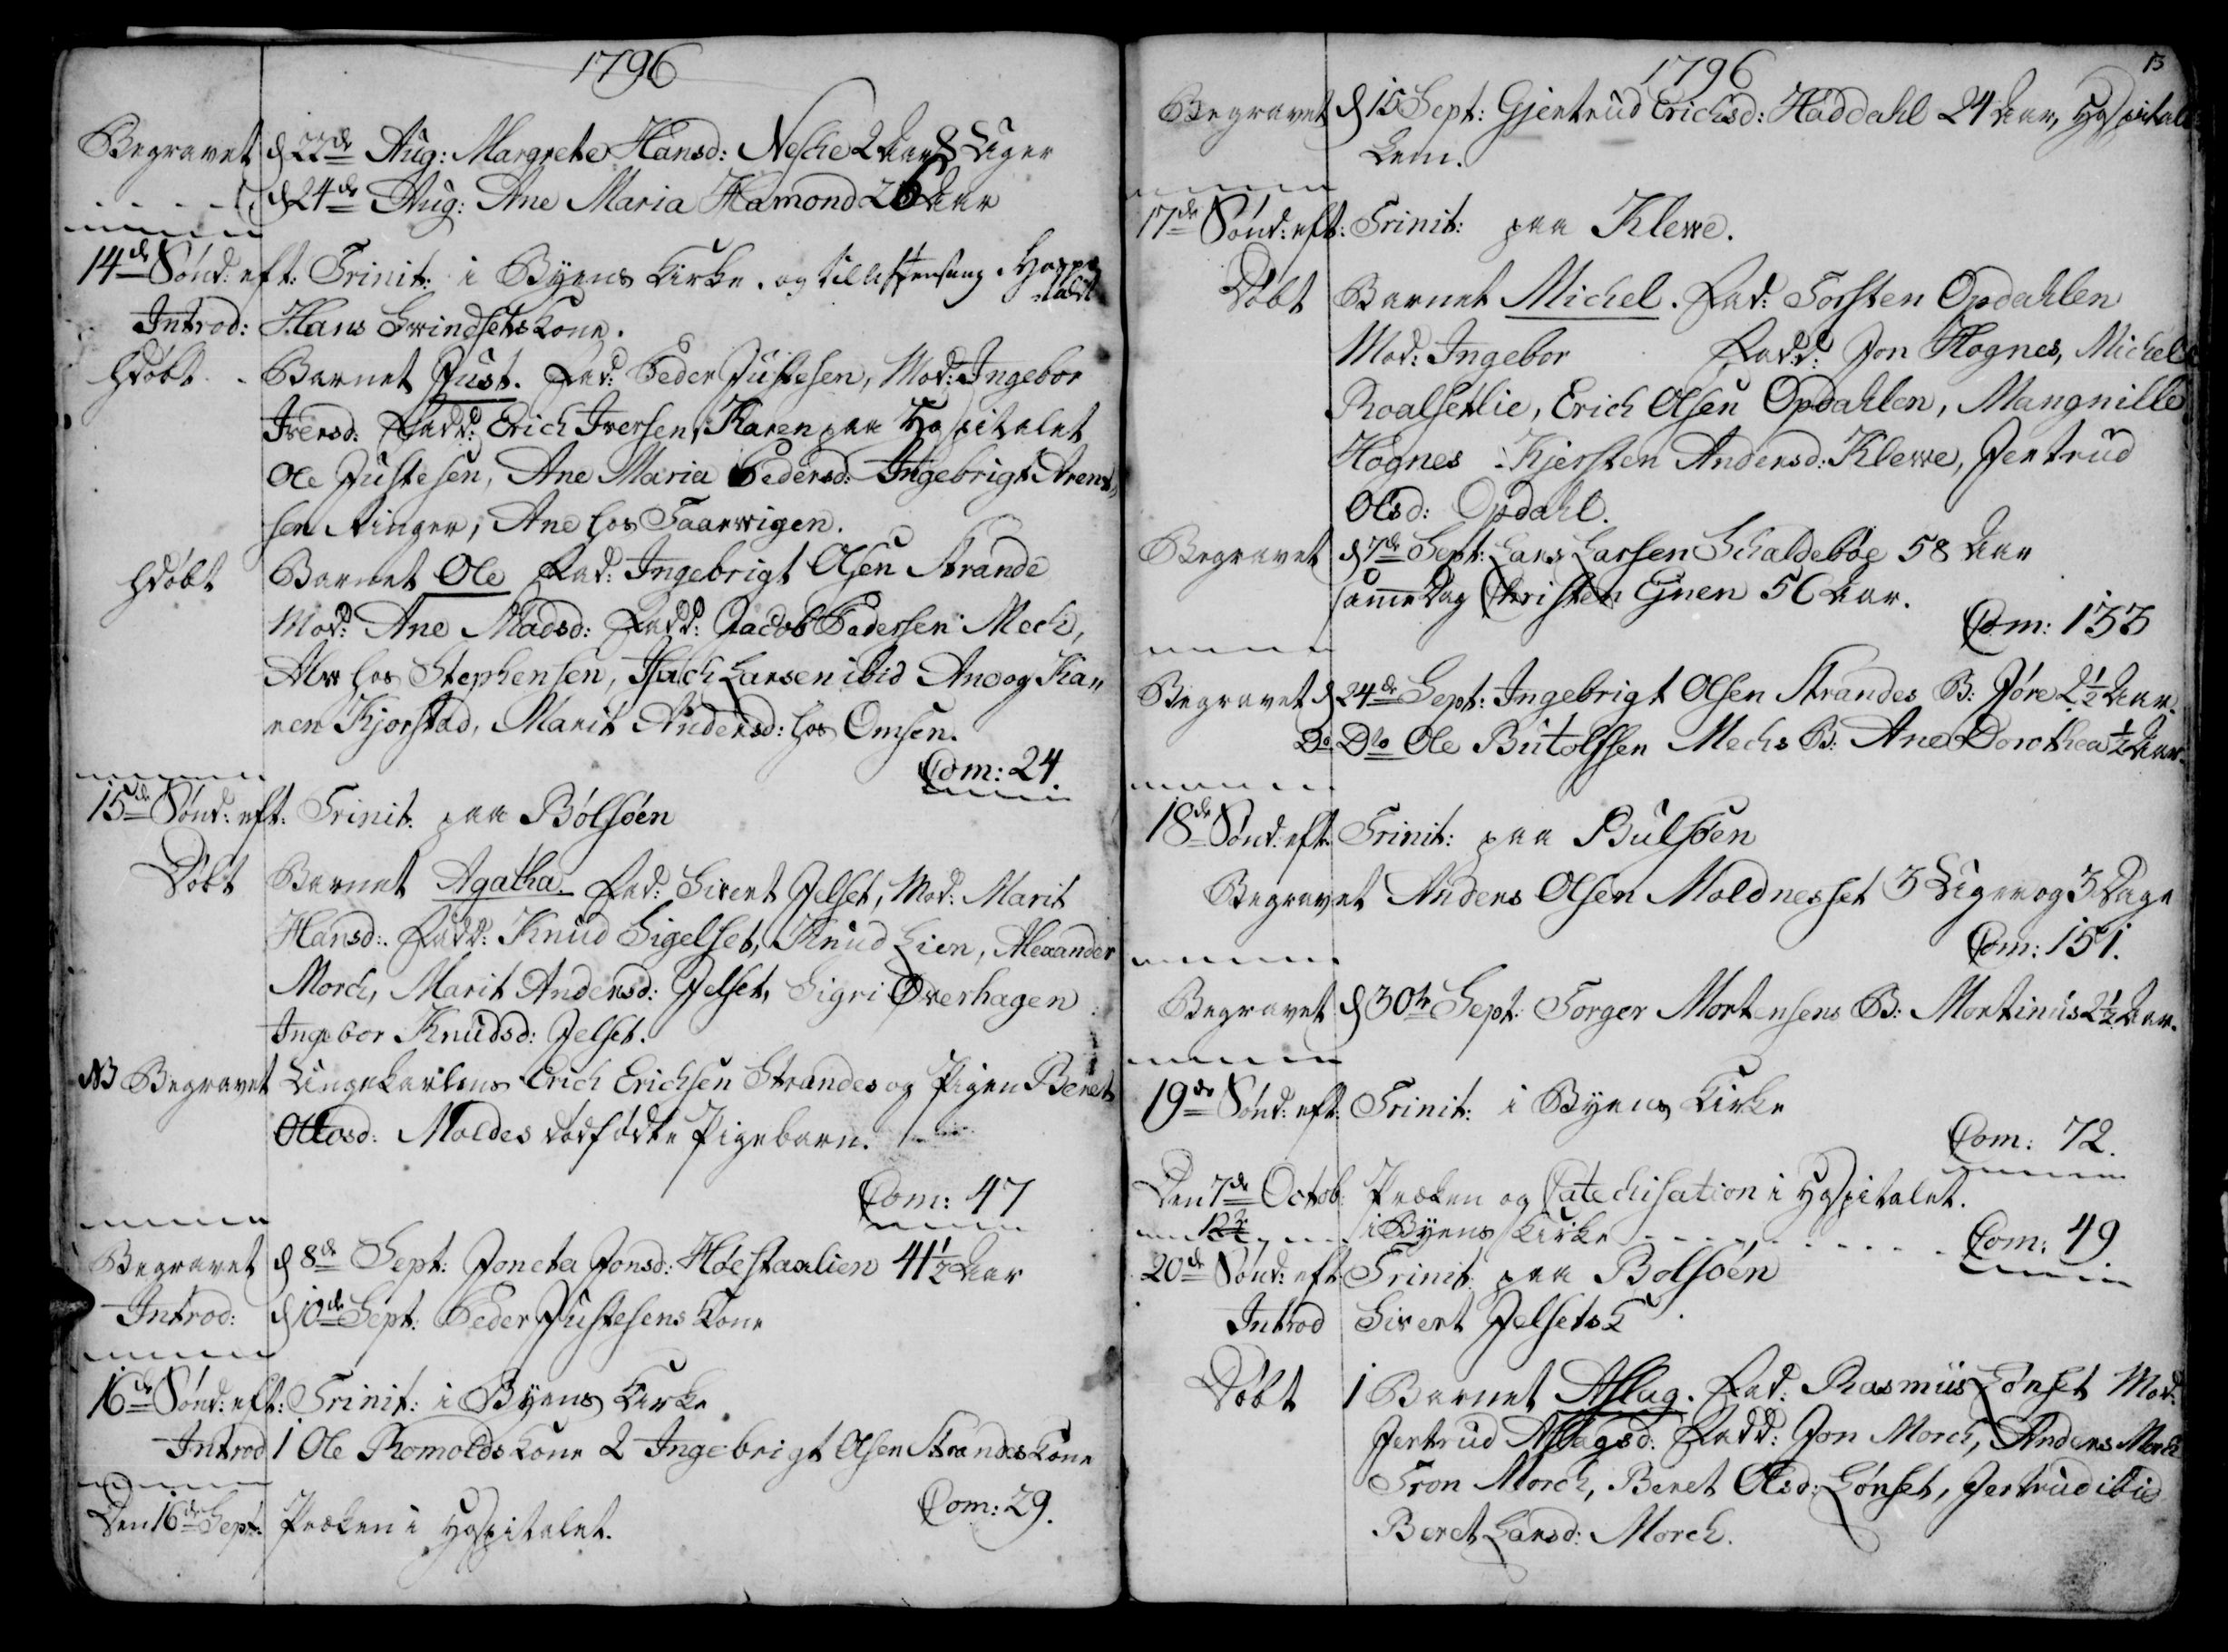 1796
Begravet d 22de Aug: Margrete Hansd: Nesche 2 Aar 8 Uger
d 24de Aug: Ane Maria Hamond 26 Aar
14de Sønd: eft: Trinit: i Byens Kirke. og til Aftensang i Hospitalet
Introd: Hans Gwindsets Kone.
Hdøbt Barnet Just. Fad: Peder Justesen, Mod: Ingebor
Iversd: Fadd: Erich Iversen, Karen paa Hospitalet
Ole Justesen, Ane Maria Pedersd: Ingebrigt Arent
sen Ringer, Ane hos Taarvigen.
Hdøbt Barnet Ole Fad: Ingebrigt Olsen Strande
Mod: Ane Madsd: Fadd: Jacob Pedersen Mech,
hos Stephensen, Isach Larsen ibid Ane og Ka
ren Kjorstad, Marit Andersd: hos Omsen.
Com: 24.
15de Sønd: eft: Trinit: paa Bølsøen
Døbt Barnet Agatha. Fad: Sivert Jelset, Mod: Marit
Hansd: Fadd: Knud Sigelset, Knud Lien, Alexander
Morch, Marit Andersd: Jelset, Sigri Øverhagen
Ingebor Knudsd: Jelset.
NB Begravet Ungekarlens Erich Erichsen Strandes og Pigen Beret
Ottosd: Moldes dødfødte Pigebarn.
Com: 47
Begravet d 8de Sept: Joneta Jonsd: Høestaalien 41 1/2 Aar
Introd: d 10de Sept: Peder Justesens Kone
16de Sønd: eft: Trinit: i Byens Kirke.
Introd 1 Ole Romolds Kone 2 Ingebrigt Olsen Strandes Kone
Com: 29.
Den 16de Sept: Præken i Hospitalet.
1796
13
Begravet d 15 Sept: Gjertrud Erichsd: Haddahl 24 Aar, Hospitals
Lem.
17de Sønd: eft: Trinit: paa Klewe.
Døbt Barnet Michel. Fad: Torsten Opdahlen
Mod: Ingebor Fadd: Jon Hognes, Michel
Roalsetlie, Erich Olsen Opdahlen, Mangnille
Hognes Kjersten Andersd: Klewe, Jertrud
Olsd: Opdahl.
Begravet d 7de Sept: Lars Larsen Schaldebøe 58 Aar
samme Dag Christen 56 Aar.
Com: 133
Begravet d 24de Sept: Ingebrigt Olsen Strandes B: Jøre 2 1/2 Aar.
Do Dto Ole Butolfsen Mechs B: Ane Dorothea 1/2 Aar.
18de Sønd: eft: Trinit: paa Bulsøen
Begravet Anders Olsen Moldnesset 3 Uger og 3 Dage
Com: 151.
Begravet d 30te Sept: Torger Mortensens B: Martinus 2 1/2 Aar.
19de Sønd: eft: Trinit: i Byens Kirke
Com: 72.
Den 7de Octob: Præken og Catechisation i Hospitalet.
i Byens Kirke Com: 49
20de Sønd: eft: Trinit: paa Bolsøen
Introd Sivert Jelsets K
Døbt 1 Barnet Aslag. Fad: Rasmus Lønset Mod:
Jertrud Aslagsd: Fadd: Jon Morch, Anders Morch
Tron Morch, Beret Olsd: Lønset, Jertrud ibid
Beret Larsd: Morch.